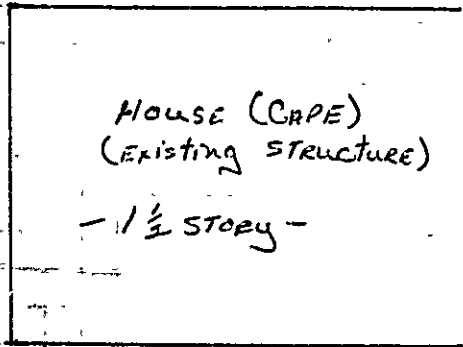 House (CAPE)
(Existing Structure)
- 1 1/2 Story -